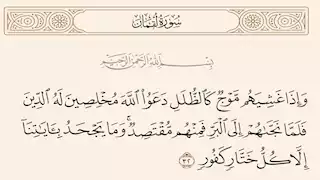 سُورَةُ لُقْمَانَ
بِسْمِ اللَّهِ الرَّحْمَٰنِ الرَّحِيمِ
وَإِذَا غَشِيَهُم مَّوْجٌ كَالظُّلَلِ دَعَوُا۟ اللَّهَ مُخْلِصِينَ لَهُ الدِّينَ
فَلَمَّا نَجَّىٰهُمْ إِلَى الْبَرِّ فَمِنْهُم مُّقْتَصِدٌ ۚ وَمَا يَجْحَدُ بِـَٔايَٰتِنَآ
إِلَّا كُلُّ خَتَّارٍ كَفُورٍ ٣٢